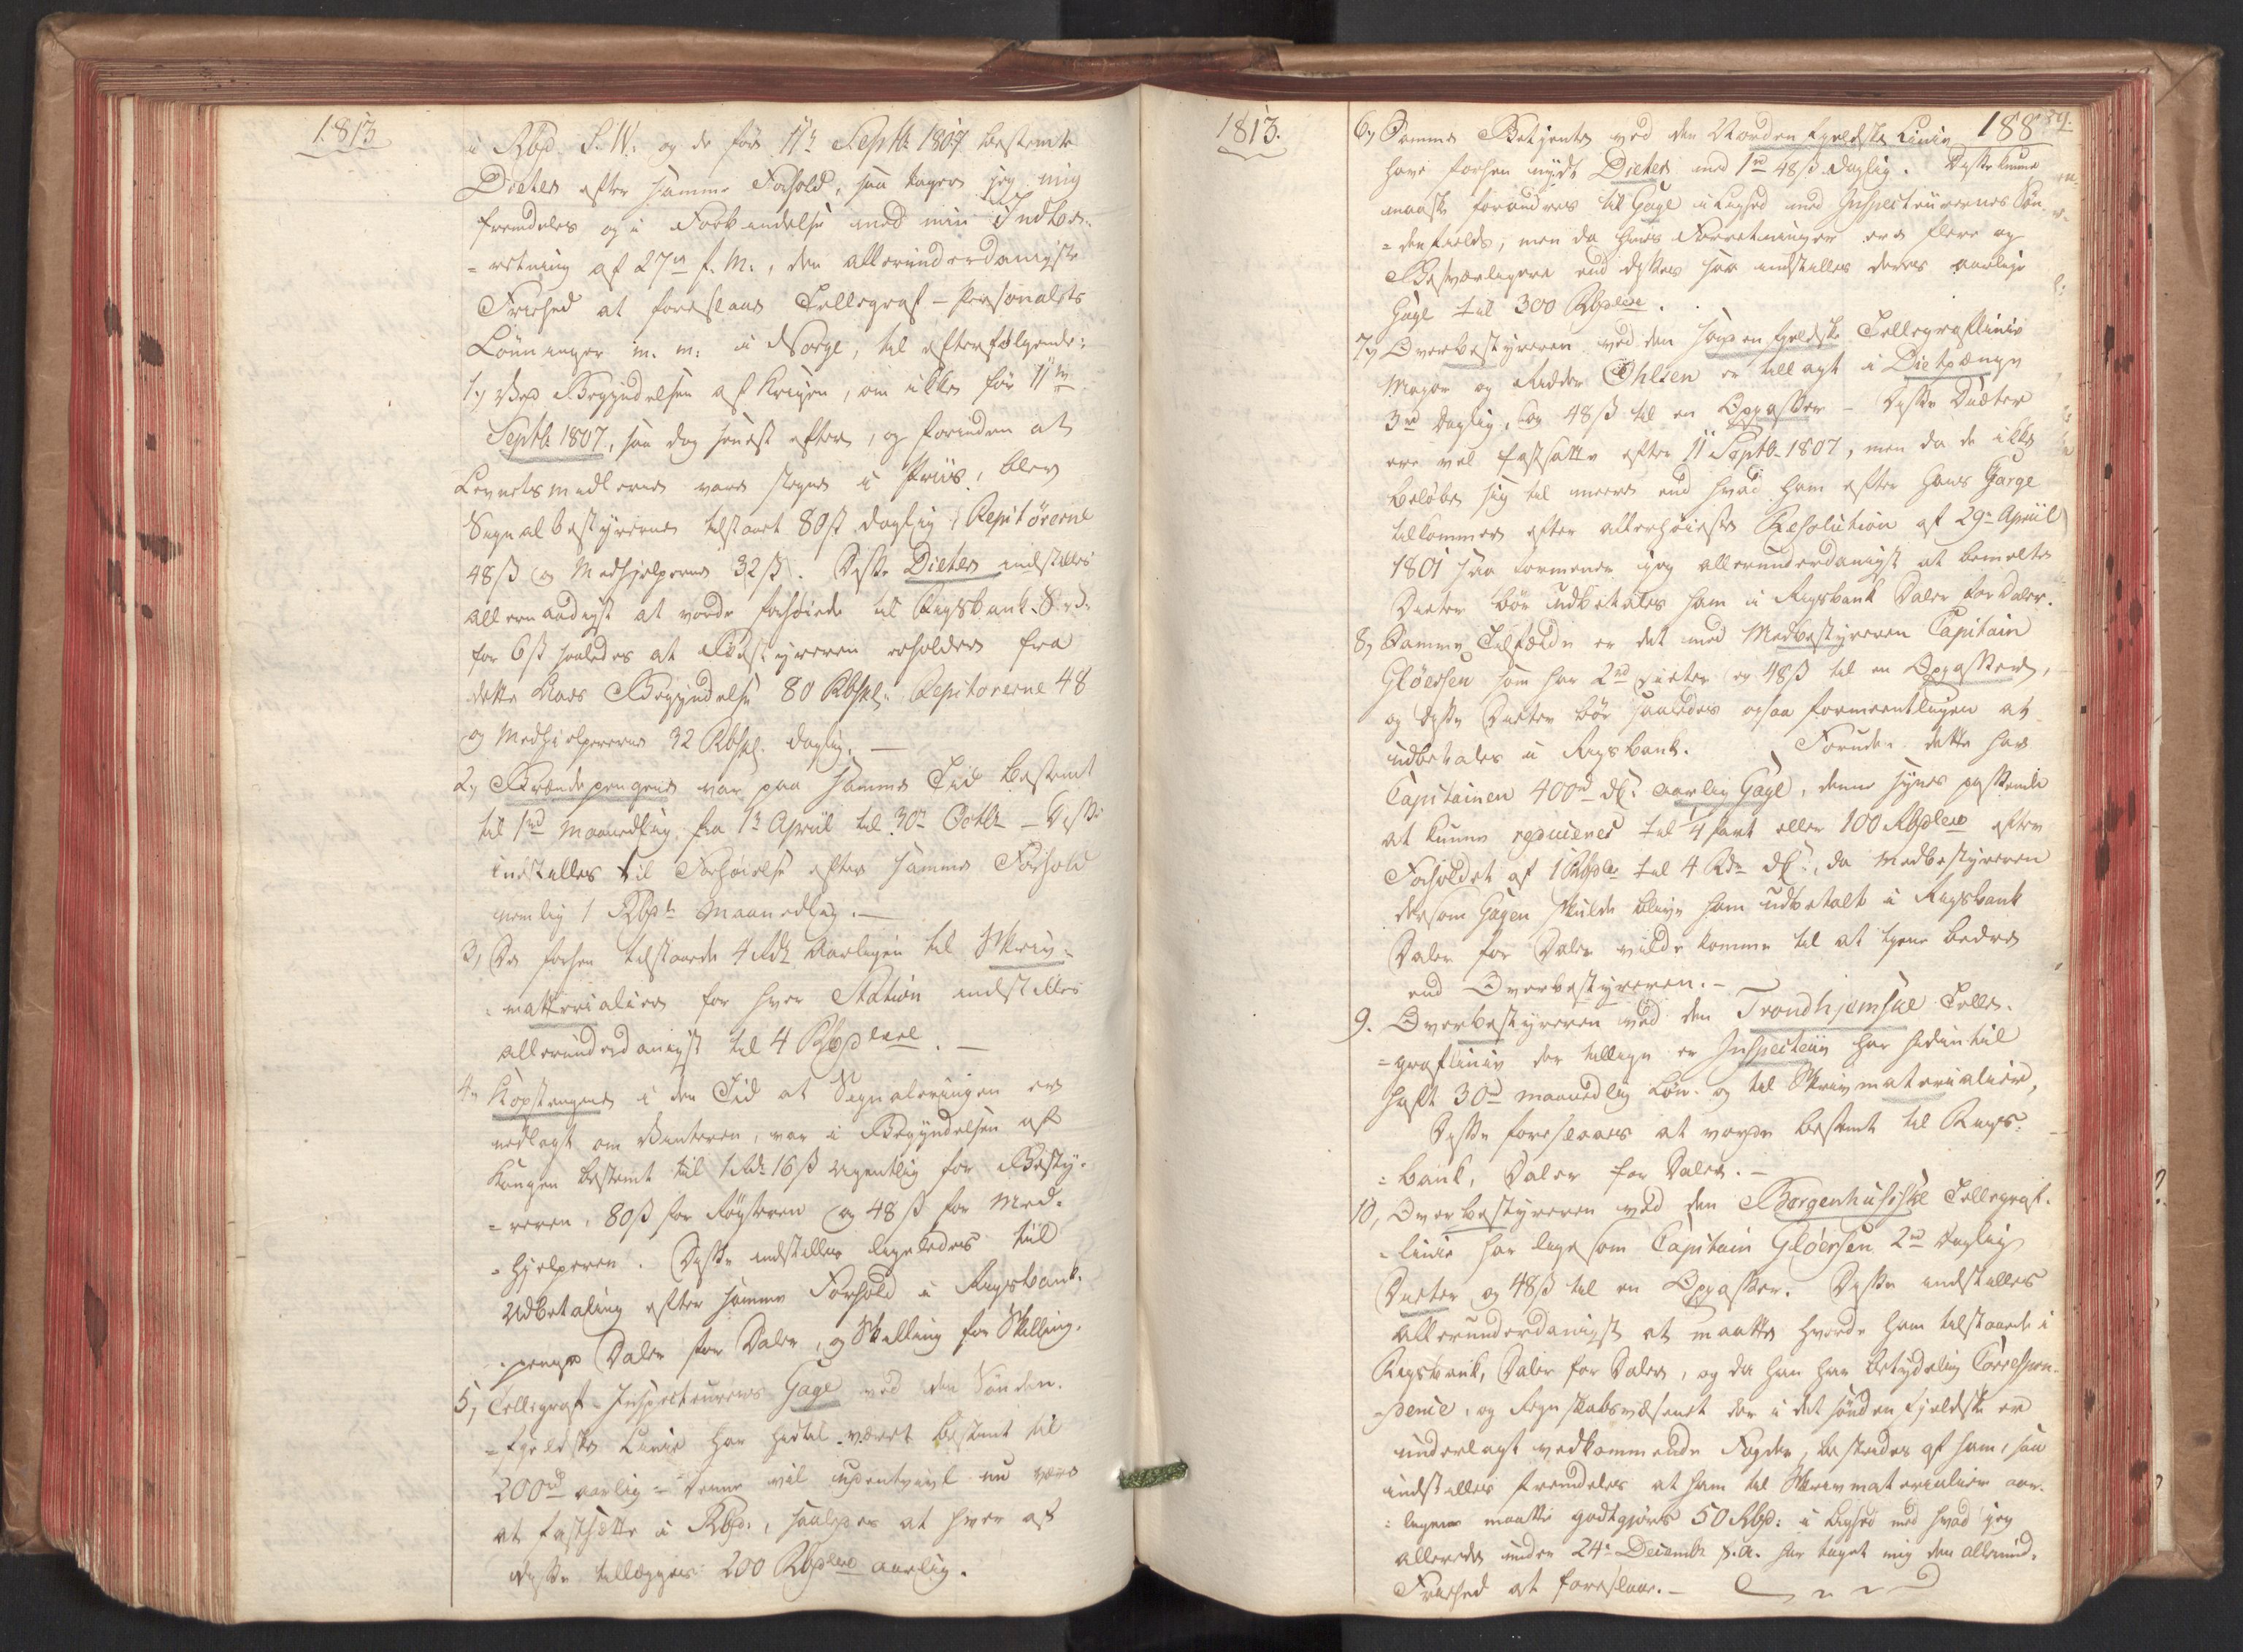 1813
i Rbd. S.W. og de før 11te Septb: 1807 bestemte
Dieter efter samme Forhold, saa tager jeg mig
fremdeles og i Forbindelse med min Indbe-
=retning af 27de f. M., den allerunderdanigste
Friehed at foreslaae Tellegraf-Personalets
Lønninger m. m. i Norge, til efterfølgende:
1.) Ved Begyndelsen af Krigen, om ikke før 11te
Septb: 1807, saa dog senest efter, og forinden at
Levnetsmidlerne vare stegne i Priis, blev
Signalbestyrerne tilstaaet 80 ß daglig, Repitørerne
48 ß og Medhjelperne 32 ß. Disse Dieter indstilles
allernaadigst at vorde forhøiede til Rigsbank S. d.
for 6 ß saaledes at Bestyreren erholder fra
dette Aars Begyndelse 80 Rbsk: Repitorerne 48
og Medhielperne 32 Rbsk. daglig. —
2.) Brændepengene var paa samme Tid bestemt
til 1 rd maanedlig fra 1te April til 30te Octbr — Disse
indstilles til Forhøielse efter samme Forhold
nemlig 1 Rbdr maanedlig. —
3, De forhen tilstaaede 4 Rdr aarligen til Skriv-
=matterialier for hver Station indstilles
allerunderdanigst til 4 Rbdaler. —
4. Kopstengene i den Tid at Signaleringen er
nedlagt om Vinteren, var i Begyndelsen af
Krigen bestemt til 1 Rdr 16 ß ugentlig for Besty-
=reren, 80 ß for Røgteren og 48 ß for Med-
=hjelperen. Disse indstilles ligeledes til
Udbetaling efter samme Forhold i Rigsbank-
=penge Daler for Daler, og Skilling for Skilling.
5, Tellegraf-Inspecteurernes Gage ved den Sønden-
=fjeldske Linie har hidtil været bestemt til
200 rd aarlig — denne vil updentvivl nu være
at fastsætte i Rbd., saaledes at hver af
disse tillægges 200 Rbdaler aarlig.
1813.
188
6.) Samme Betjente ved den Nordenfjeldske Linie
have forhen nydt Dieter med 1 rd 48 ß daglig. Disse kunne
maaske forandres til Gage i Lighed med Inspecteurernes Søn-
=denfields, men da hines Forretninger ere flere og
Besværligere end disses saa indstilles deres aarlige
Gage til 300 Rbdaler.
7.) Overbestyreren ved den søndenfjeldske Tellegraflinie
Major og Ridder Ohlsen er tillagt i Dietpænge
3 rd daglig, og 48 ß til en Oppasser — Disse Diæter
ere vel fastsatte efter 11te Septb. 1807, men da de ikke
beløbe sig til meere end hvad ham efter hans Charge
tilkommer efter allerhøieste Resolution af 29de April
1801 saa formener jeg allerunderdanigst at bemelte
Dieter bør udbetales ham i Rigsbank Daler for Daler.
8, Samme Tilfælde er det med Medbestyreren Capitain
Gløersen som har 2 rd Dieter og 48 ß til en Oppasser,
og disse Dieter bør saaledes ogsaa formeentligen at
udbetales i Rigsbank. Foruden dette har
Capitainen 400 rd dC: aarlig Gage, denne synes passende
at kunne reduceres til 1/4 part eller 100 Rbdaler efter
Forholdet af 1 Rbdlr til 4 Rdr dC:, da Medbestyreren
dersom Gagen skulde blive ham udbetalt i Rigsbank
Daler for Daler vilde komme til at tjene bedre
end Overbestyreren. —
9. Overbestyreren ved den Trondhjemske Telle-
=graflinie der tillige er Inspecteur har hidintil
havt 30 rd maanedlig Løn. og til Skrivmaterialier,
Disse foreslaaes at vorde bestemt til Rigs-
=bank, Daler for Daler. —
10, Overbestyreren ved den Bergenhusiske Tellegraf-
=linie har lige som Capitain Gløersen 2 rd daglig
Diæter og 48 ß til en Oppasser. Disse indstilles
allerunderdanigst at maatte vorde ham tilstaaede i
Rigsbank, Daler for Daler, og da han har betydelig Correspon-
=dence, og Regnskabsvæsenet der i det søndenfjeldske er
underlagt vedkommende Fogder, bestrides af ham, saa
indstilles fremdeles at ham til Skrivmaterialier aar-
=ligen maatte godtgjøres 50 Rbd: i Lighed med hvad jeg
allerede under 24de Decembr f. A. har taget mig den allerund.
Friehed at foreslaae. —